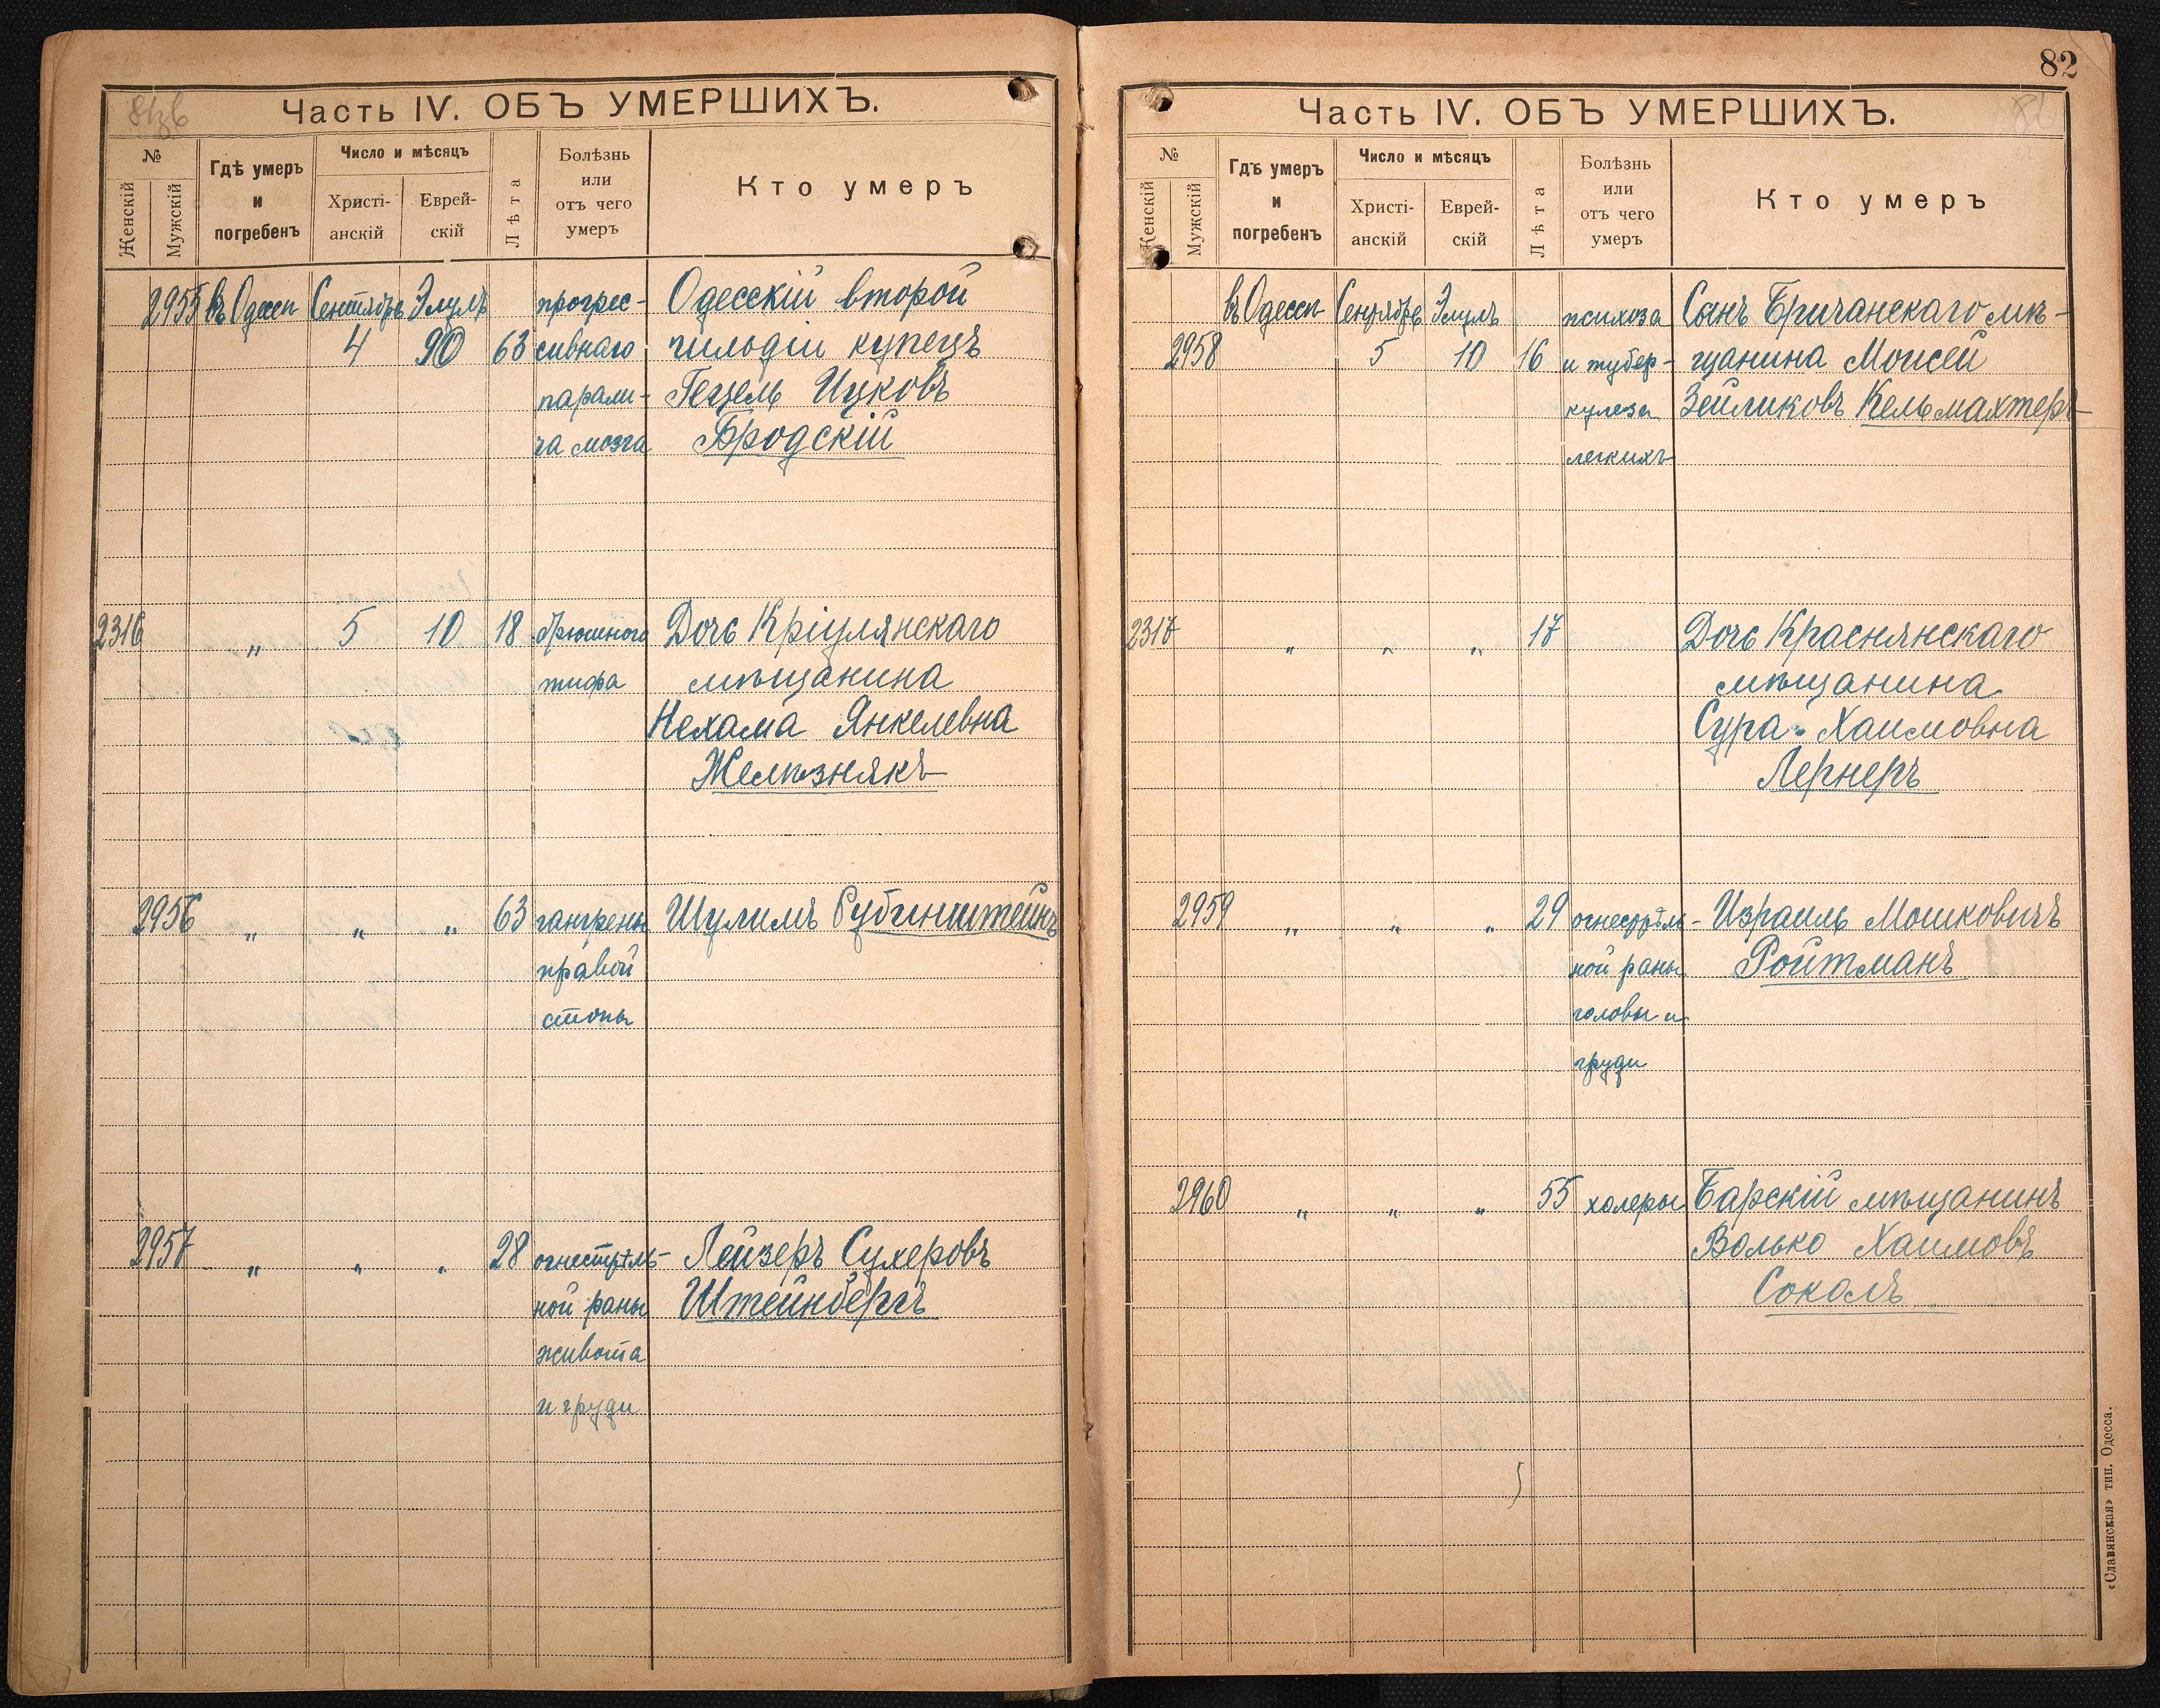 Часть IV. ОБЪ УМЕРШИХЪ.
№
Женскій
Мужскій
Гдѣ умеръ
и
погребенъ
Число и мѣсяцъ
Христі-
анскій
Еврей-
скій
Лѣта
Болѣзнь
или
отъ чего
умеръ
Кто умеръ
2955 въ Одессѣ Сентябрь Элулъ прогрес- Одесскій второй
4 63 сивнаго гильдіи купецъ
парали- Гецель Ицковъ
ча мозга Бродскій
2316 „ 5 10 18 брюшного Дочь Кріулянскаго
тифа мѣщанина
Нехама Янкелевна
Желѣзнякъ
2956 „ „ „ 63 гангрены Шулимъ Рубинштейнъ
правой
стопы
2957 „ „ „ 28 огнестрѣль- Лейзеръ Сухеровъ
ной раны Штейнбергъ
живота
и груди
82
Часть IV. ОБЪ УМЕРШИХЪ.
№
Женскій
Мужскій
Гдѣ умеръ
и
погребенъ
Число и мѣсяцъ
Христі-
анскій
Еврей-
скій
Лѣта
Болѣзнь
или
отъ чего
умеръ
Кто умеръ
въ Одессѣ Сентябрь Элулъ психоза Сынъ Бричанскаго мѣ-
2958 5 10 16 и тубер- щанина Моисей
кулеза Зейликовъ Кельмахтеръ
легкихъ
2317 „ „ „ 17 Дочь Краснянскаго
мѣщанина
Сура Хаимовна
Лернеръ
2959 „ „ „ 29 огнестрѣль- Израиль Мошковичъ
ной раны Ройтманъ
головы и
груди
2960 „ „ „ 55 холеры Барскій мѣщанинъ
Волько Хаимовъ
Соколъ
«Славянская» тип. Одесса.